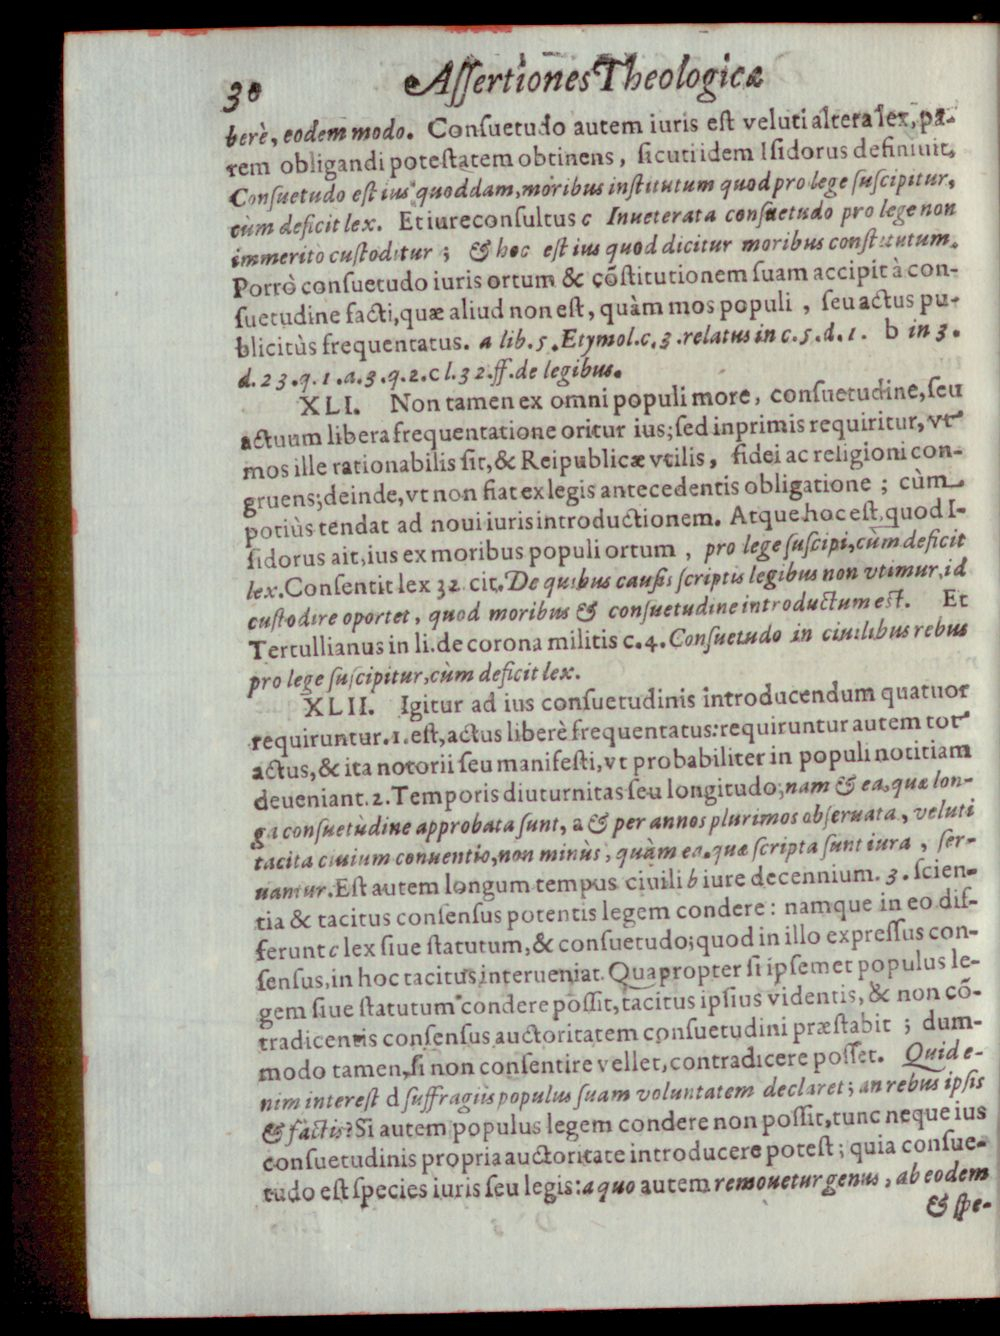 30 Aſſertiones Theologicæ
berè, eodem modo. Conſuetudo autem iuris eſt veluti altera lex, pa-
rem obligandi poteſtatem obtinens, ſicuti idem Iſidorus definiuit,
Conſuetudo eſt ius quoddam, moribus inſtitutum quod pro lege ſuſcipitur,
cùm deficit lex. Et iureconſultus c Inueterata conſuetudo pro lege non
immeritò cuſtoditur; & hoc eſt ius quod dicitur moribus conſtitutum.
Porrò conſuetudo iuris ortum & cõſtitutionem ſuam accipit à con-
ſuetudine facti, quæ aliud non eſt, quàm mos populi, ſeu actus pu-
blicitùs frequentatus. a lib. 5. Etymol. c. 3. relatus in c. 5. d. 1. b in 3.
d. 23. q. 1. a. 3. q. 2. c l. 32. ff. de legibus.
XLI. Non tamen ex omni populi more, conſuetudine, ſeu
actuum libera frequentatione oritur ius; ſed inprimis requiritur, vt
mos ille rationabilis ſit, & Reipublicæ vtilis, fidei ac religioni con-
gruens; deinde, vt non fiat ex legis antecedentis obligatione; cùm
potiùs tendat ad noui iuris introductionem. Atque hoc eſt, quod I-
ſidorus ait, ius ex moribus populi ortum, pro lege ſuſcipi, cùm deficit
lex. Conſentit lex 32. cit. De quibus cauſis ſcriptis legibus non vtimur, id
cuſtodire oportet, quod moribus & conſuetudine introductum eſt. Et
Tertullianus in li. de corona militis c. 4. Conſuetudo in ciuilibus rebus
pro lege ſuſcipitur, cùm deficit lex.
XLII. Igitur ad ius conſuetudinis introducendum quatuor
requiruntur. 1. eſt, actus liberè frequentatus: requiruntur autem tot
actus, & ita notorii ſeu manifeſti, vt probabiliter in populi notitiam
deueniant. 2. Temporis diuturnitas ſeu longitudo; nam & ea, quæ lon-
ga conſuetùdine approbata ſunt, a & per annos plurimos obſeruata, veluti
tacita ciuium conuentio, non minùs, quàm ea, quæ ſcripta ſunt iura, ſer-
uantur. Eſt autem longum tempus ciuili b iure decennium. 3. ſcien-
tia & tacitus conſenſus potentis legem condere: namque in eo dif-
ferunt c lex ſiue ſtatutum, & conſuetudo; quod in illo expreſſus con-
ſenſus, in hoc tacitus interueniat. Quapropter ſi ipſemet populus le-
gem ſiue ſtatutum condere poſſit, tacitus ipſius videntis, & non cõ-
tradicentis conſenſus auctoritatem conſuetudini præſtabit; dum-
modo tamen, ſi non conſentire vellet, contradicere poſſet. Quid e-
nim intereſt d ſuffragiis populus ſuam voluntatem declaret; an rebus ipſis
& factis? Si autem populus legem condere non poſſit, tunc neque ius
conſuetudinis propria auctoritate introducere poteſt; quia conſue-
tudo eſt ſpecies iuris ſeu legis: a quo autem remouetur genus, ab eodem
& ſpe-